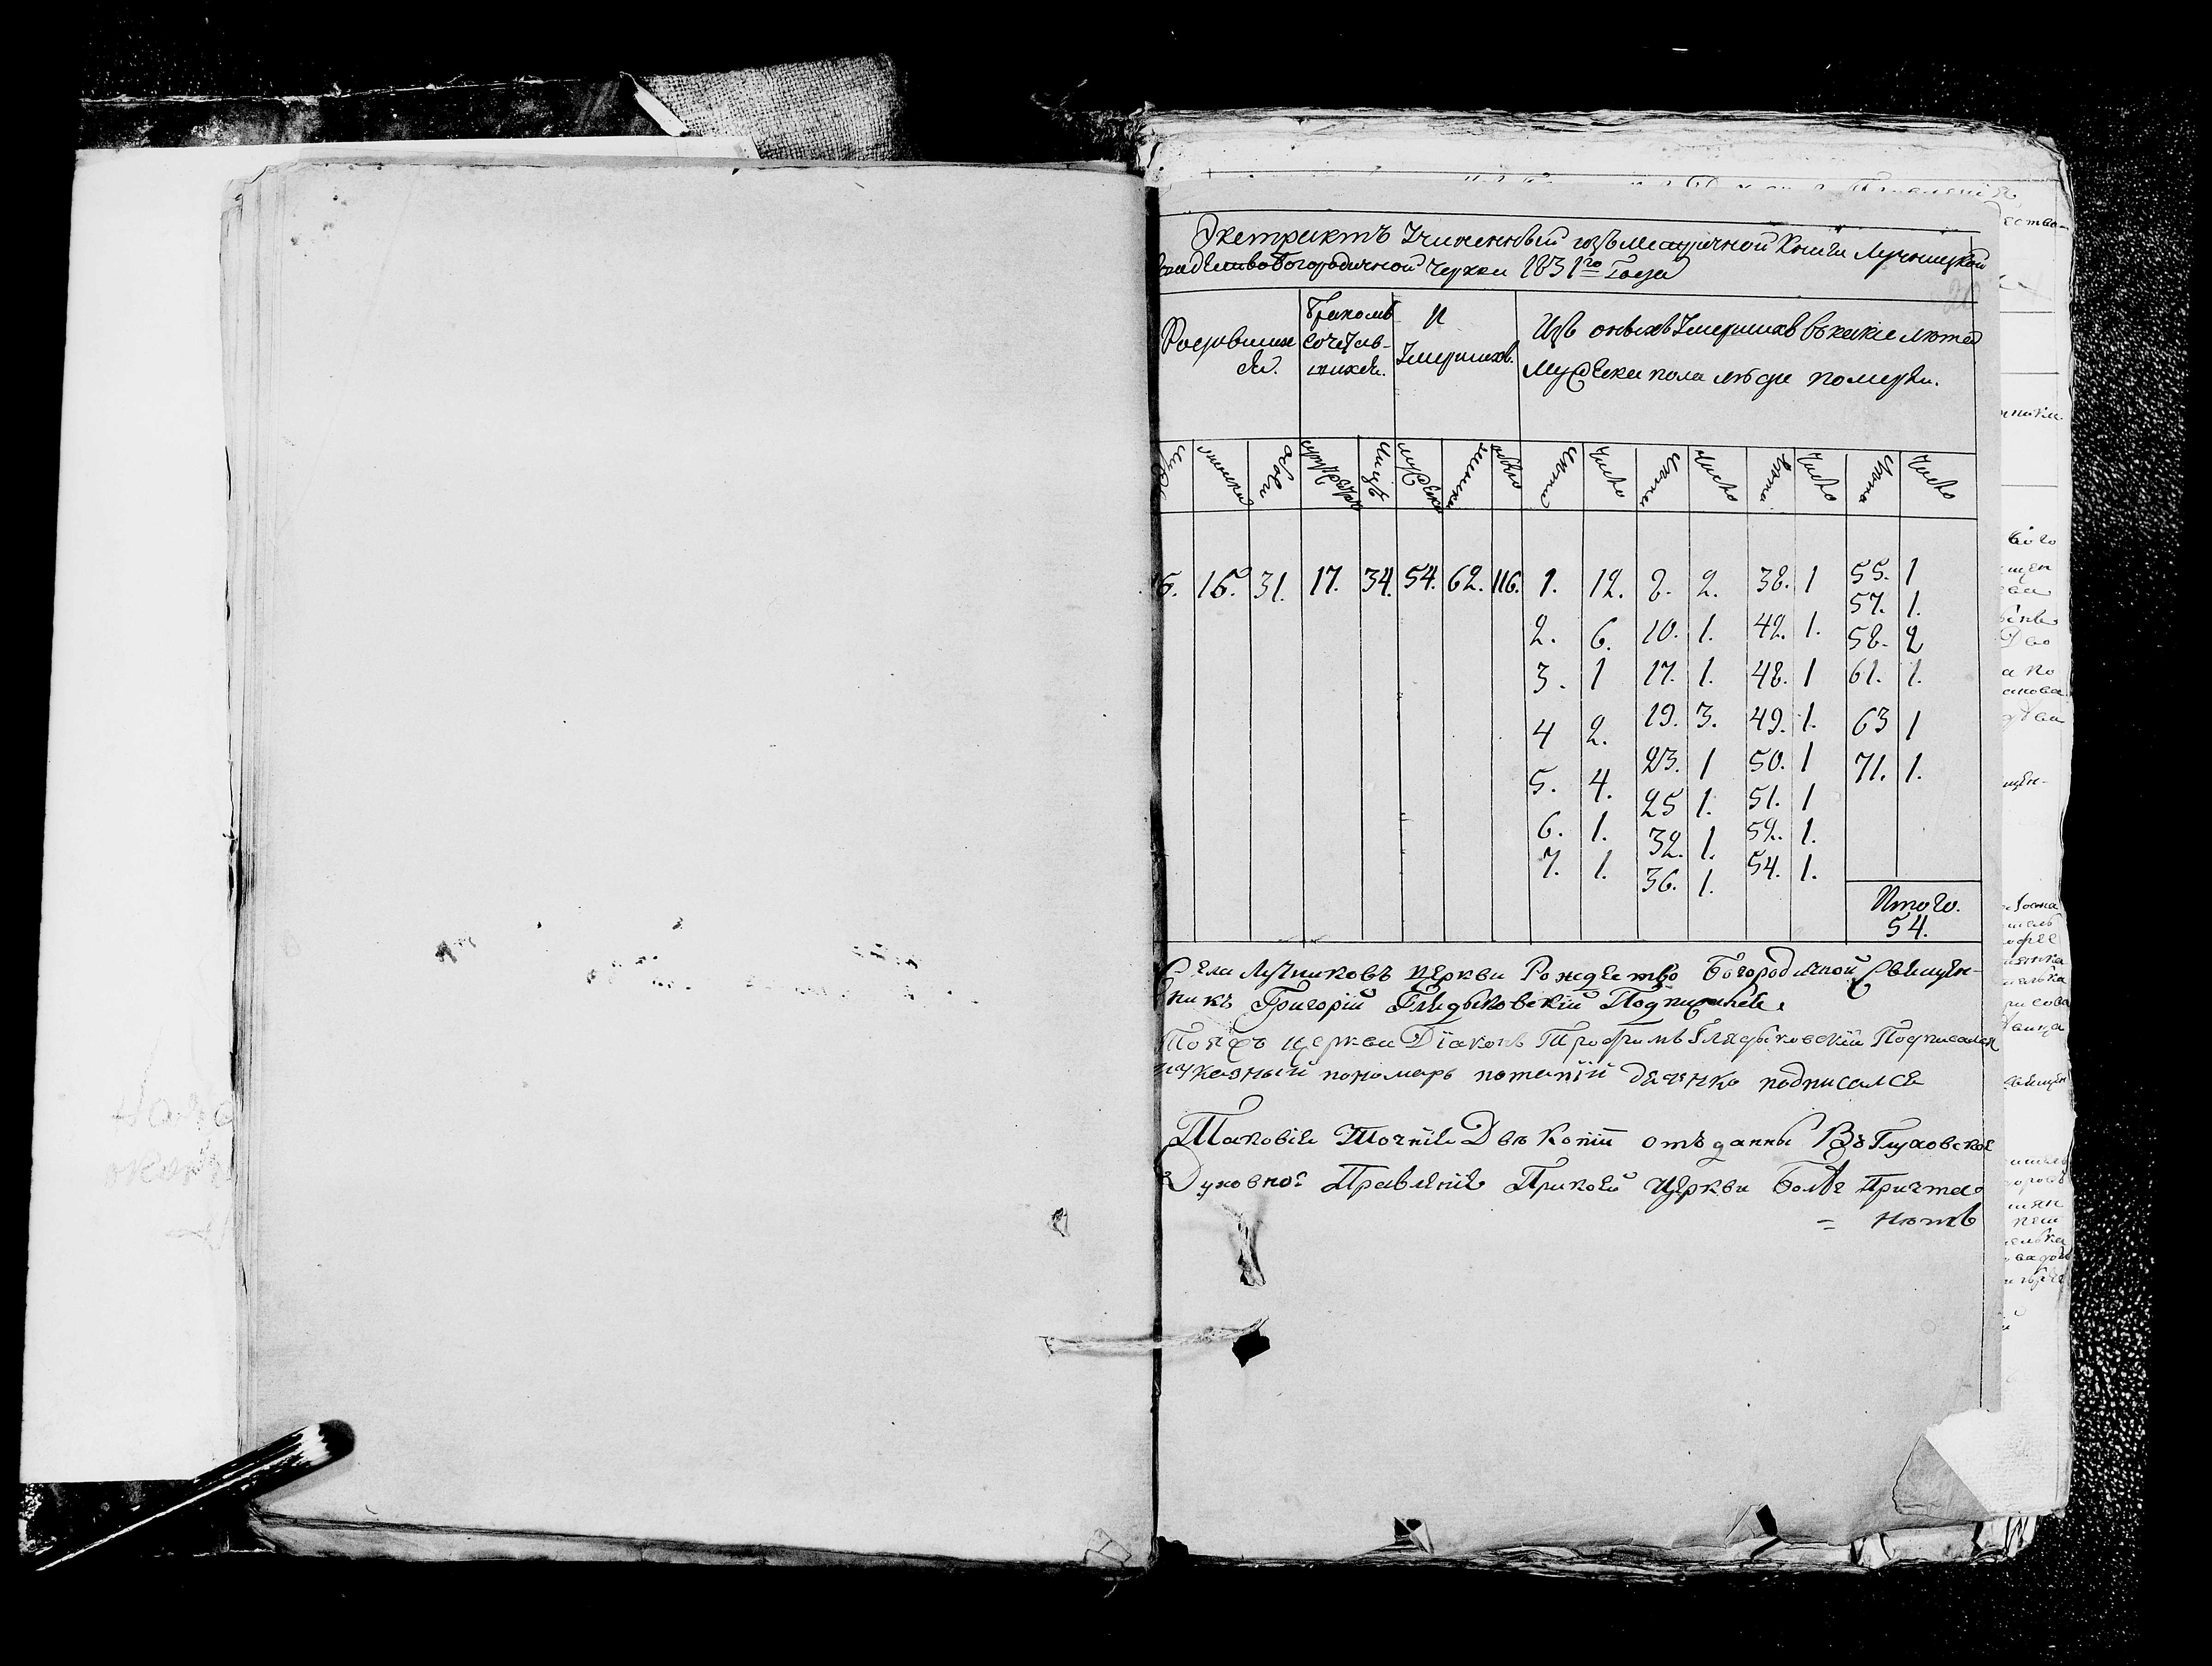 Экстрактъ Учиненный изъ Метричной Книги Лучницкой
Рождественобогородичной Церкви 1831го Года
Родивших
ся.
Бракомъ
Сочетав-
шихся.
И
Умершихъ.
Изъ оныхъ Умершихъ въ какие лета
Мужеска пола люде померли.
Муж
женска
обоихъ
супружествъ
лицъ
мужеска
женска
обоихъ
Лета
Число
Лета
Число
Лета
Число
Лета
Число
5. 16. 31. 17. 34. 54. 62. 116. 1. 12. 8. 2. 38. 1 55. 1
57. 1.
2. 6. 10. 1. 42. 1. 58. 2
3. 1 17. 1. 48. 1 61. 1.
4 2. 19. 3. 49. 1. 63 1
5. 4. 23. 1 50. 1 71. 1.
25 1. 51. 1
6. 1. 32. 1. 52. 1.
7. 1. 36. 1. 54. 1.
Итого.
54.
Села Лучниковъ Церкви Рождество Богородичной Священ-
никъ Григорій Глядыковскій Подписался.
Тояжъ церкви Діаконъ Трофимъ Глядыковскій Подписался
указный пономарь потапій подписался
Таковіе Точніе Две Копіи отъданны Въ Глуховское
Духовное Правленіе При коей Церкви Боле Причта
= нетъ